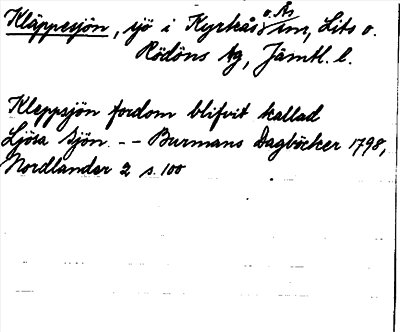 Kläppesjön, sjö i Kyrkås o. Ås s:nr, Lits o.
Rödöns tg, Jämtl. l.
Kleppsjön fordom blifvit kallad
Ljösa sjön. -- Burmans Dagböcker 1798,
Nordlander 2 s. 100